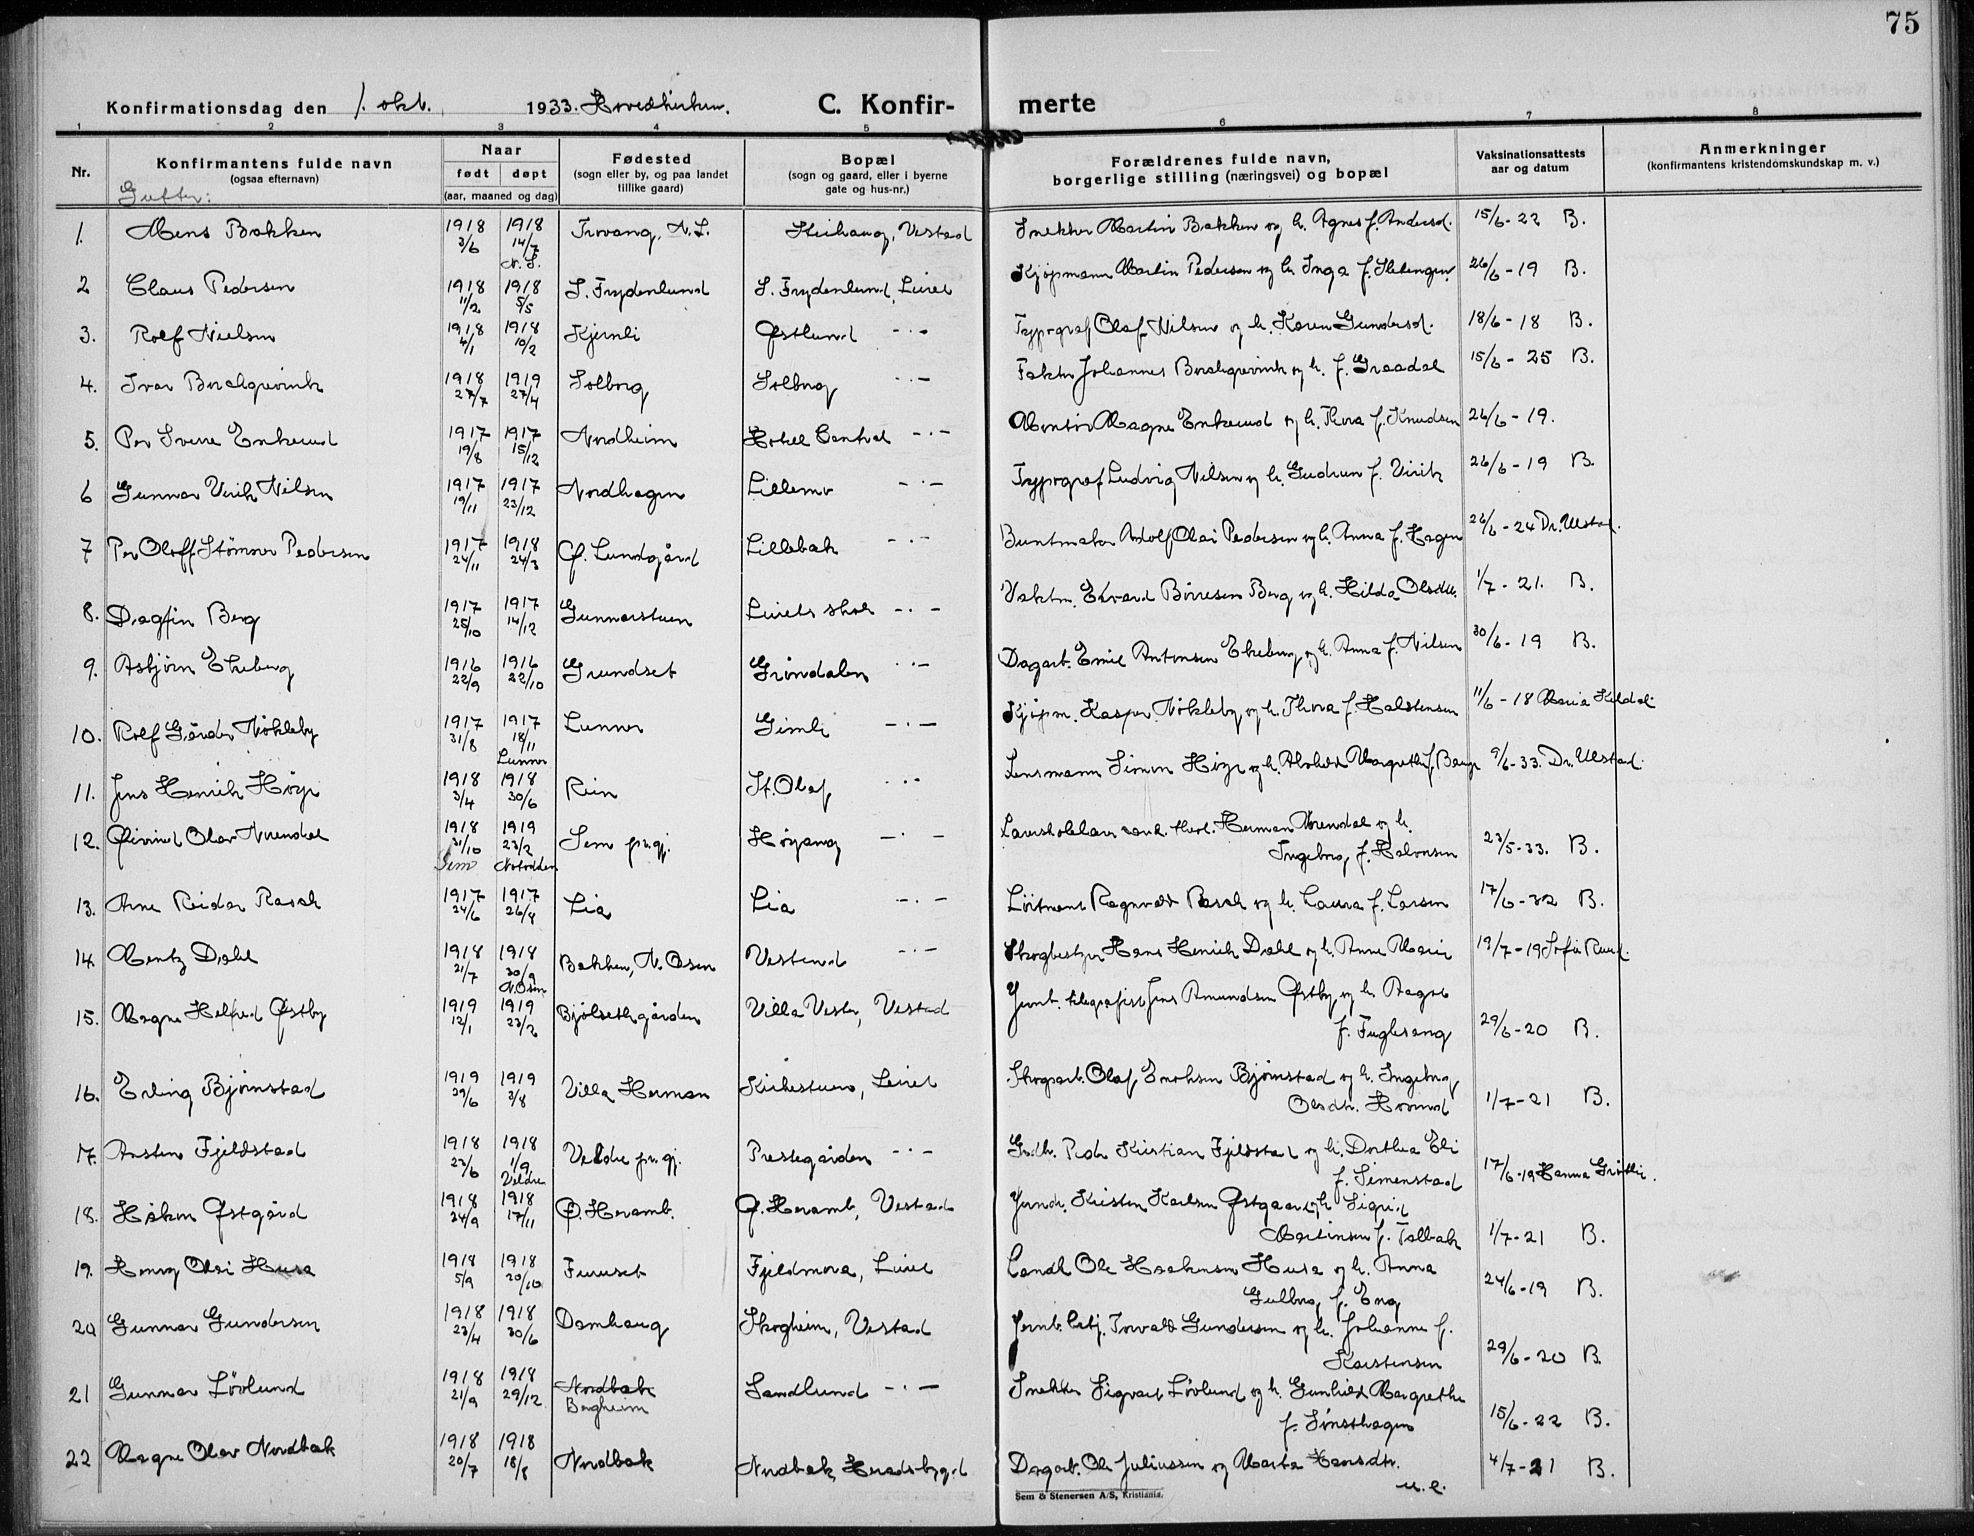 75
Konfirmationsdag den 1. okt. 1933. Hovedkirken. C. Konfir- merte
1 2 3 4 5 6 7 8
Nr. Konfirmantens fulde navn (ogsaa efternavn) Naar født døpt (aar, maaned og dag) Fødested (sogn eller by, og paa landet tillike gaard) Bopæl (sogn og gaard, eller i byerne gate og hus-nr.) Forældrenes fulde navn, borgerlige stilling (næringsvei) og bopæl Vaksinationsattests aar og datum Anmerkninger (konfirmantens kristendomskundskap m. v.)
Gutter:
1. Mens Bakken 1918 3/6 1918 14/7 N. L. N. L. Vestad Snekker Martin Bakken og h. Agnes f. Andersd. 15/6-22 B.
2 Claus Pedersen 1918 11/2 1918 5/5 S. Frydenlund S. Frydenlund, Leiret Kjøpmann Martin Pedersen og h. Inga f. 26/6-19 B.
3. Rolf Nielsen 1918 4/1 1918 10/2 Kjernli Østlund -·- Typograf Olaf Nilsen og h. Karen Gundersd. 18/6-18 B.
4. Ivar Borchgrevink 1918 27/7 1919 27/4 Solborg Solborg -·- Faktor Johannes Borchgrevink og h. f. Graadal 15/6-25 B.
5. Per Sverre Enkerud 1917 19/8 1917 15/12 Nordheim Hotel Central -·- Montør Magne Enkerud og h. Thora f. Knudsen 26/6-19.
6 Gunnar Virik Nilsen 1917 19/11 1917 23/12 Nordhagen Lillemo -·- Typograf Ludvig Nilsen og h. Gudrun f. Virik 26/6-19 B.
7 Per Oloff Størmer Pedersen 1917 24/11 1918 24/3 Ø. Lundgård Lillebak -·- Buntmaker Adolf Olai Pedersen og h. Anna f. Hagen 26/6-24 Dr. Ulstad.
8. Dagfin Berg 1917 25/10 1917 14/12 Gunnarstuen Leirets skole -·- Vaktm. Edvard Børresen Berg og h. Hilda Olsdtr. 1/7-21. B.
9. Asbjørn Ekeberg 1916 22/9 1916 22/10 Grundset Grindalen -·- Dagarb. Emil Antonsen Ekeberg og h. Anna f. Nilsen 30/6-19 B.
10. Rolf Gørder Nøkleby 1917 31/8 1917 18/11 Lunner Lunner Gimli -·- Kjøpm. Kasper Nøkleby og h. Thora f. Halstensen 11/6-18 Maria Kildal
11. Jens Henrik Høye 1918 3/4 1918 30/6 Rein St. Olaf -·- Lensmann Simen Høye og h. Margrethe f. Bauge 9/6-33. Dr. Ulstad.
12. Øivind Olav Norendal 1918 31/10 Sem 1919 23/2 Notodden Sem pr.gj. Høyang -·- Herman Norendal og h.
Ingeborg f. Halvorsen 23/5-33. B.
13. Arne Reidar Rasch 1917 24/6 1917 26/8 Lia Lia -·- Løitnant Ragnvald Rasch og h. Laura f. Larsen 17/6-32 B.
14. Mentz Dahl 1918 21/7 1918 30/9 N. Osen Bakken, N. Osen Vestend -·- Skogbestyr. Hans Henrik Dahl og h. Anne Marie 19/7-19 Sofie Ruud.
15. Magne Helfred Østby 1919 12/1 1919 23/2 Bjølsethgården Villa Vesta, Vestad Jernb. telegrafist Jens Amundsen Østby og h. Aagot
f. Fuglesang 29/6-20 B.
16. Erling Bjørnstad 1919 29/6 1919 3/8 Villa Herman Kirkestuen, Leiret Skogarb. Olaf Enoksen Bjørnstad og h. Ingeborg
Olsdtr. 1/7-21 B.
17. Austen Fjeldstad 1918 23/6 1918 1/9 Veldre Veldre pr.gj. Prestegården -·- Grdb. Peder Kristian Fjeldstad og h. Dorthea Eli
f. Simenstad 17/6-19 Hanna
18. Håkon Østgård 1918 24/9 1918 17/11 Ø. Heramb. Ø. Heramb, Vestad Kristen Karlsen Østgaard og h. Sigrid
Martinsen f. Talbak 1/7-21 B.
19. Henry Olai Husa 1918 5/9 1918 20/10 Furuset Fjeldmora, Leiret Landh. Ole Haakensen Husa og h. Anna
Gulborg f. Eng 24/6-19 B.
20 Gunnar Gundersen 1918 23/4 1918 30/6 Damhaug Skogheim, Vestad Jernb. betj. Torvald Gundersen og h. Johanne f.
Karstensen 29/6-20 B.
21 Gunnar Løvlund 1918 21/9 1918 29/12 Nordbak Bergheim Sandlund -·- Snekker Sigvart Løvlund og h. Gunhild Margrethe
f. Sønsthagen 15/6-22 B.
22 Magne Olav Nordbak 1918 20/7 1918 18/8 Nordbak Nordbak, Heradsbygd Dagarb. Ole Juliussen og Marta Hansdtr.
u. e. 4/7-21 B.
Sem & Stenersen A/S, Kristiania.